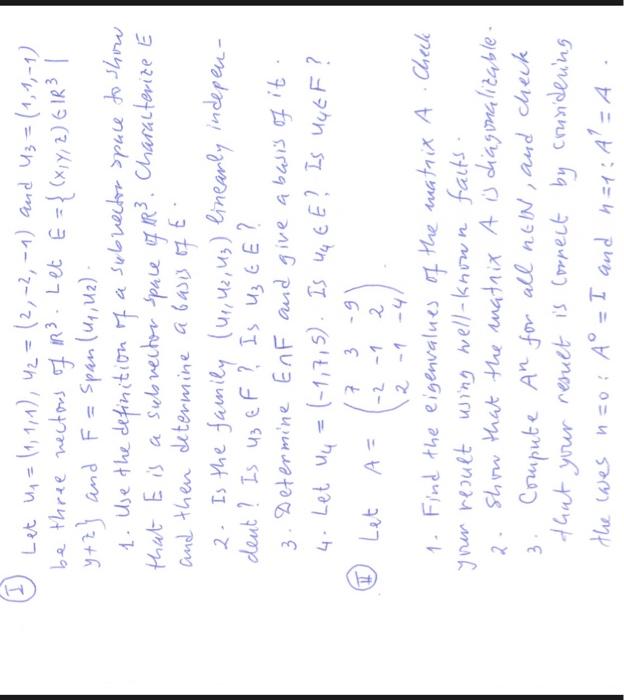 I Let u1 = (1,1,1), u2 = (2,-2,-1) and u3 = (1,1,-1)
be three vectors of IR³. Let E = {(x,y,z) ∈ IR³ |
y+z} and F = span(u1,u2).
1. Use the definition of a subvector space to show
that E is a subvector space of IR³. Characterize E
and then determine a basis of E.
2. Is the family (u1,u2,u3) linearly indepen-
dent? Is u3 ∈ F? Is u3 ∈ E?
3. Determine E∩F and give a basis of it.
4. Let u4 = (-1,7,5). Is u4 ∈ E? Is u4 ∈ F?
II Let A = ( 7 3 -9
-2 -1 2
2 -1 -4 ).
1. Find the eigenvalues of the matrix A. Check
your result using well-known facts.
2. Show that the matrix A is diagonalizable.
3. Compute Aⁿ for all n ∈ IN, and check
that your result is correct by considering
the cases n=0: A⁰ = I and n=1: A¹ = A.